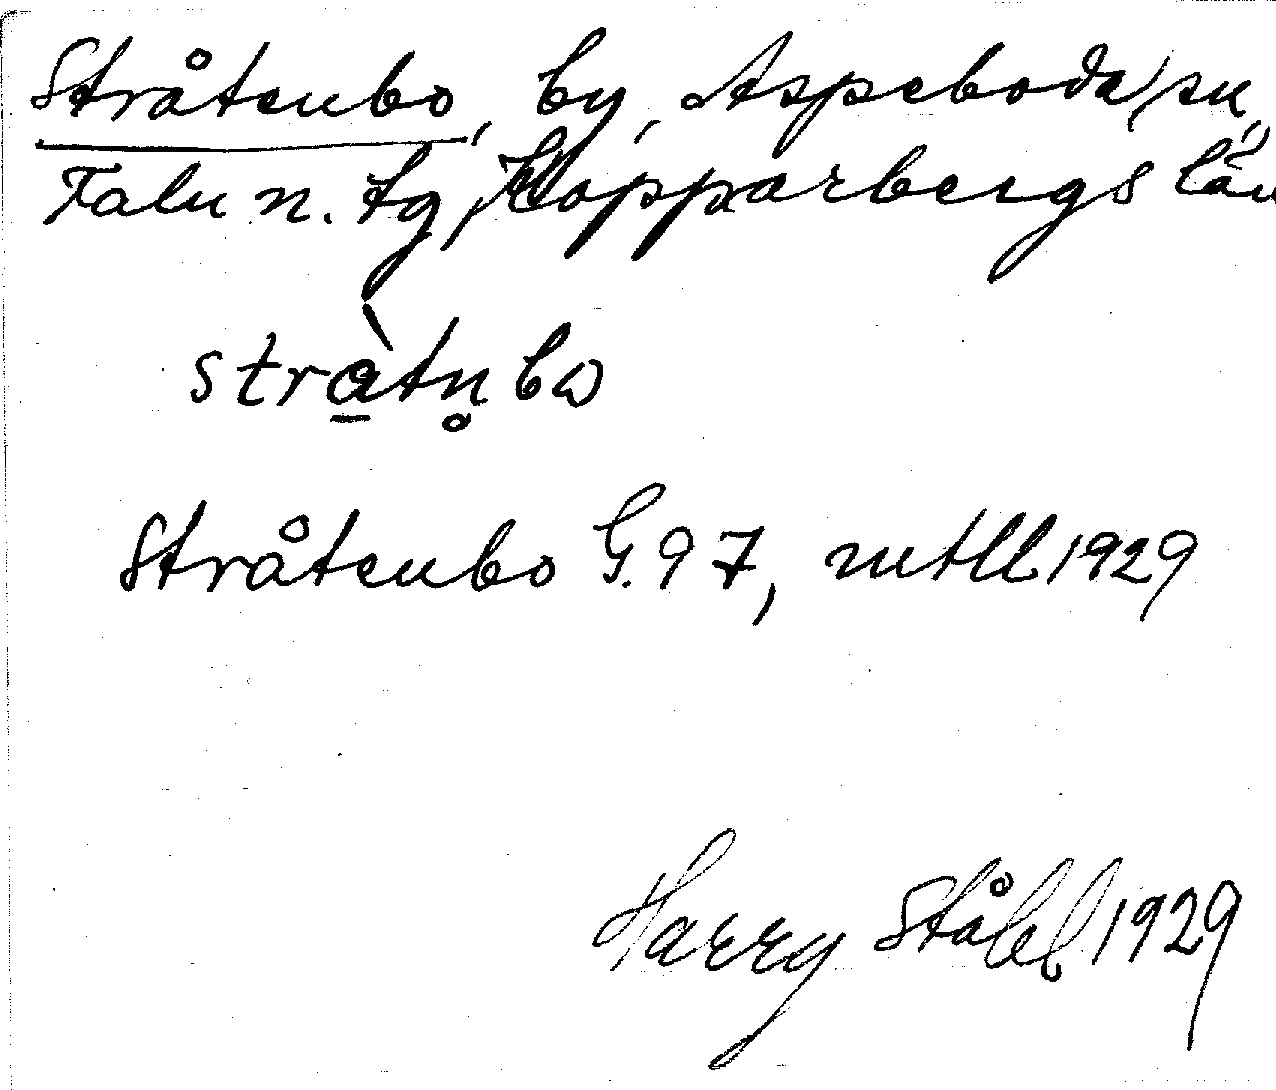 Stråtenbo, by, Aspeboda sn,
Falu n. tg, Kopparbergs län
strà̱tn̥bω
Stråtenbo G. 97, mtll 1929
Harry Ståhl 1929